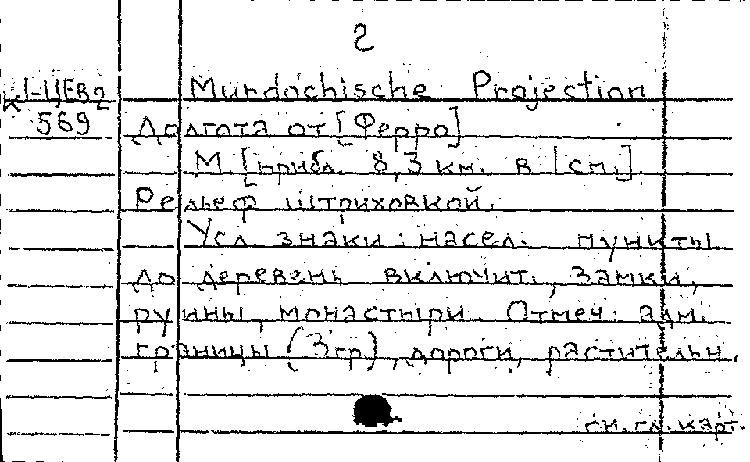 2
Murdochische Projection
569
Долгота от [Ферро]
М [прибл. 8,3 км. в 1 см.]
Рельеф штриховкой.
Усл. знаки: насел. пункты
до деревень включит., замки,
руины, монастыри. Отмеч. адм.
границы (3 гр), дороги, растительн.
см. гл. карт.